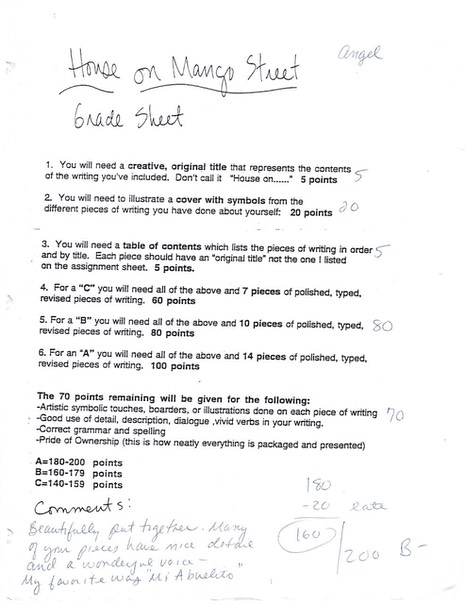 Angel
House on Mango Street
Grade Sheet
1. You will need a creative, original title that represents the contents
of the writing you've included. Don't call it "House on......" 5 points 5
2. You will need to illustrate a cover with symbols from the
different pieces of writing you have done about yourself: 20 points 20
3. You will need a table of contents which lists the pieces of writing in order 5
and by title. Each piece should have an "original title" not the one I listed
on the assignment sheet. 5 points.
4. For a "C" you will need all of the above and 7 pieces of polished, typed,
revised pieces of writing. 60 points
5. For a "B" you will need all of the above and 10 pieces of polished, typed, 80
revised pieces of writing. 80 points
6. For an "A" you will need all of the above and 14 pieces of polished, typed,
revised pieces of writing. 100 points
The 70 points remaining will be given for the following:
-Artistic symbolic touches, boarders, or illustrations done on each piece of writing 70
-Good use of detail, description, dialogue ,vivid verbs in your writing.
-Correct grammar and spelling
-Pride of Ownership (this is how neatly everything is packaged and presented)
A=180-200 points
B=160-179 points
C=140-159 points
180
Comments: -20 late
Beautifully put together. Many 160
of your pieces have nice detail /200 B-
and a wonderful voice-
My favorite was "Mi Abuelito"